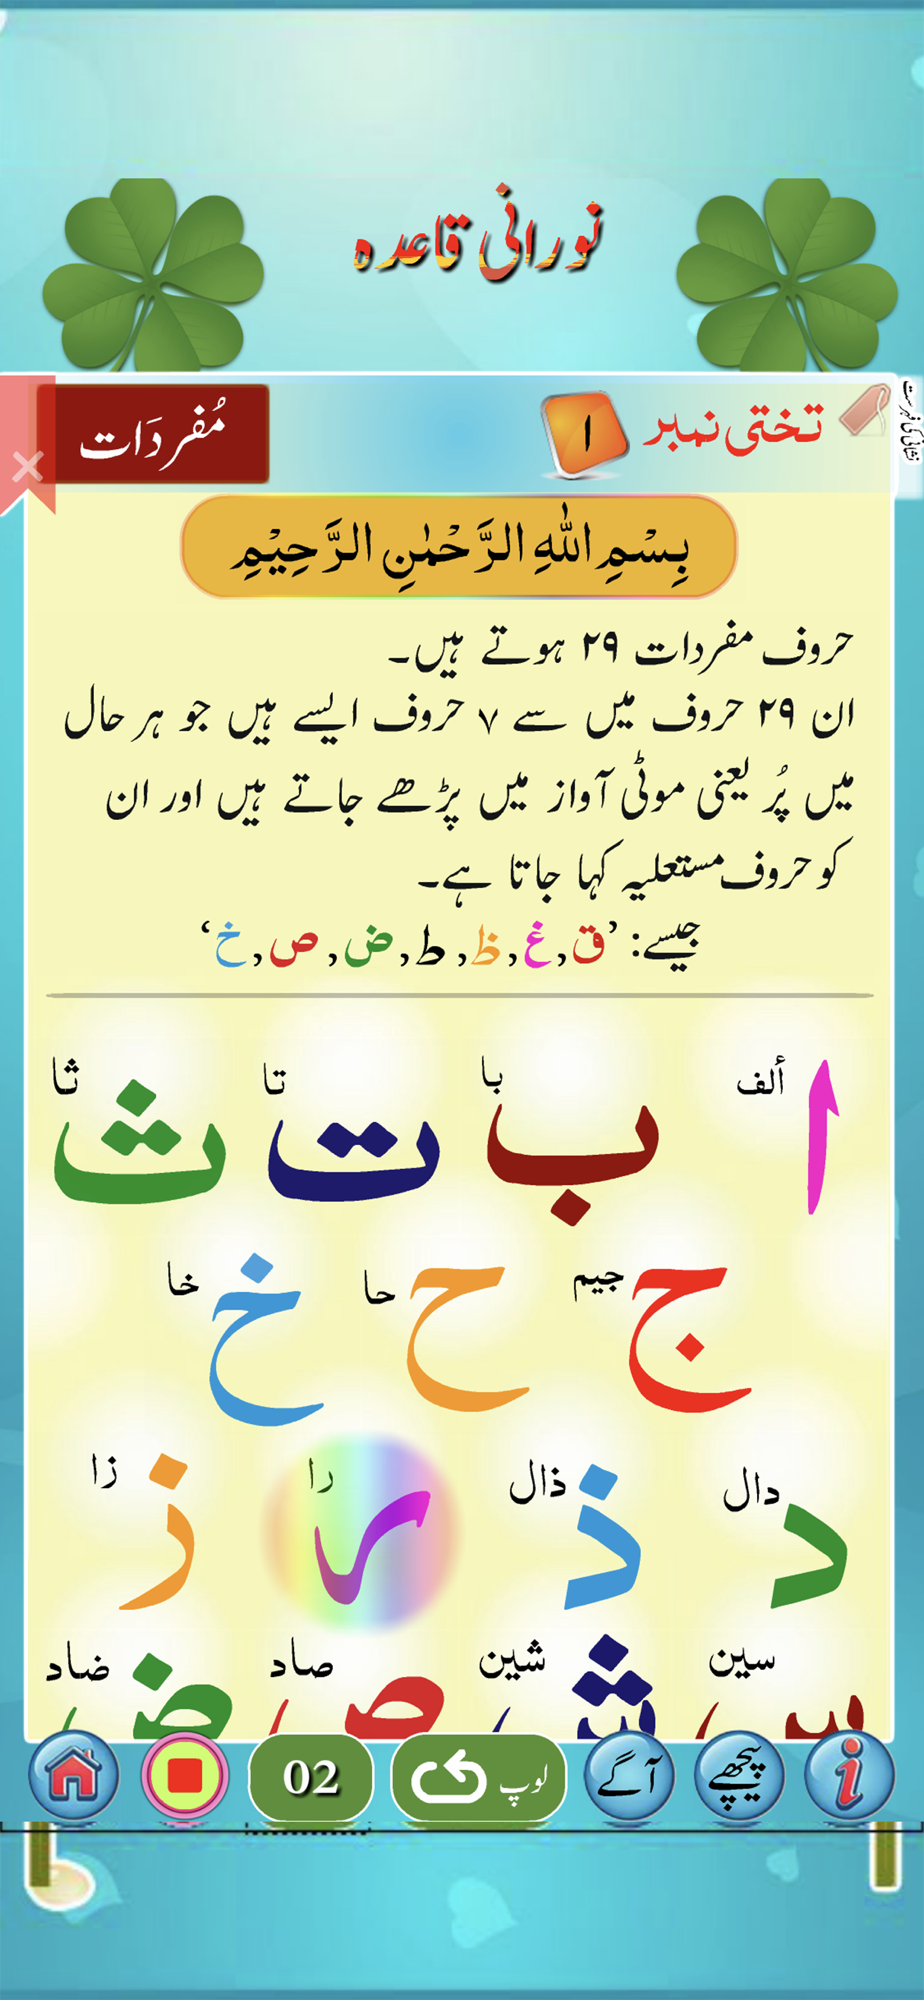 نورانی قاعدہ
نشانی کی فہرست
تختی نمبر ۱ مُفردَات
بِسْمِ اللّٰهِ الرَّحْمٰنِ الرَّحِيْمِ
حروف مفردات ۲۹ ہوتے ہیں۔
ان ۲۹ حروف میں سے ۷ حروف ایسے ہیں جو ہر حال
میں پُر یعنی موٹی آواز میں پڑھے جاتے ہیں اور ان
کو حروف مستعلیہ کہا جاتا ہے۔
جیسے: ’ق,غ,ظ,ط,ض,ص,خ‘
ألف با تا ثا
ا ب ت ث
جیم حا خا
ج ح خ
دال ذال را زا
د ذ ر ز
سین شین صاد ضاد
س ش ص ض
i پیچھے آگے لوپ 02